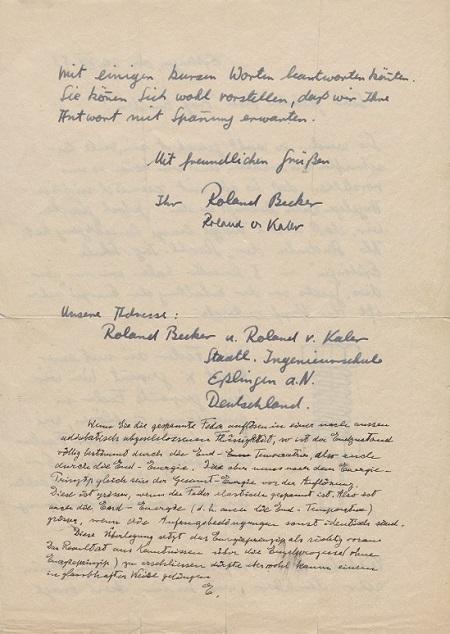 mit einigen kurzen Worten beantworten könten.
Sie könen Sich wohl vorstellen, daß wir Ihre
Antwort mit Spanung erwarten.
Mit freundlichen Grüßen
Ihr Roland Becker
Roland v. Kaler
Unsere Adresse:
Roland Becker u. Roland v. Kaler
Staatl. Ingenieurschule
Eßlingen a. N.
Deutschland.
Wenn Sie die gespannte Feder auflösen in einer nach aussen
adiabatisch abgeschlossenen Flüssigkeit, so ist der Endzustand
völlig bestimmt durch die End-Temperatur, also auch
durch die End-Energie. Diese aber muss nach dem Energie-
Prinzip gleich sein der Gesamt-Energie vor der Auflösung.
Diese ist grösser, wenn die Feder elastisch gespannt ist. Also ist
auch die End-Energie (d. h. auch die End-Temperatur)
grösser, wenn die Anfangsbedingungen sonst identisch sind.
Diese Überlegung setzt das Energieprinzip als richtig voraus.
Das Resultat aus Kenntnissen über die Einzelprozesse (ohne
Energieprinzip) zu erschliessen dürfte wohl kaum einem
in glaubhafter Weise gelingen.
E.